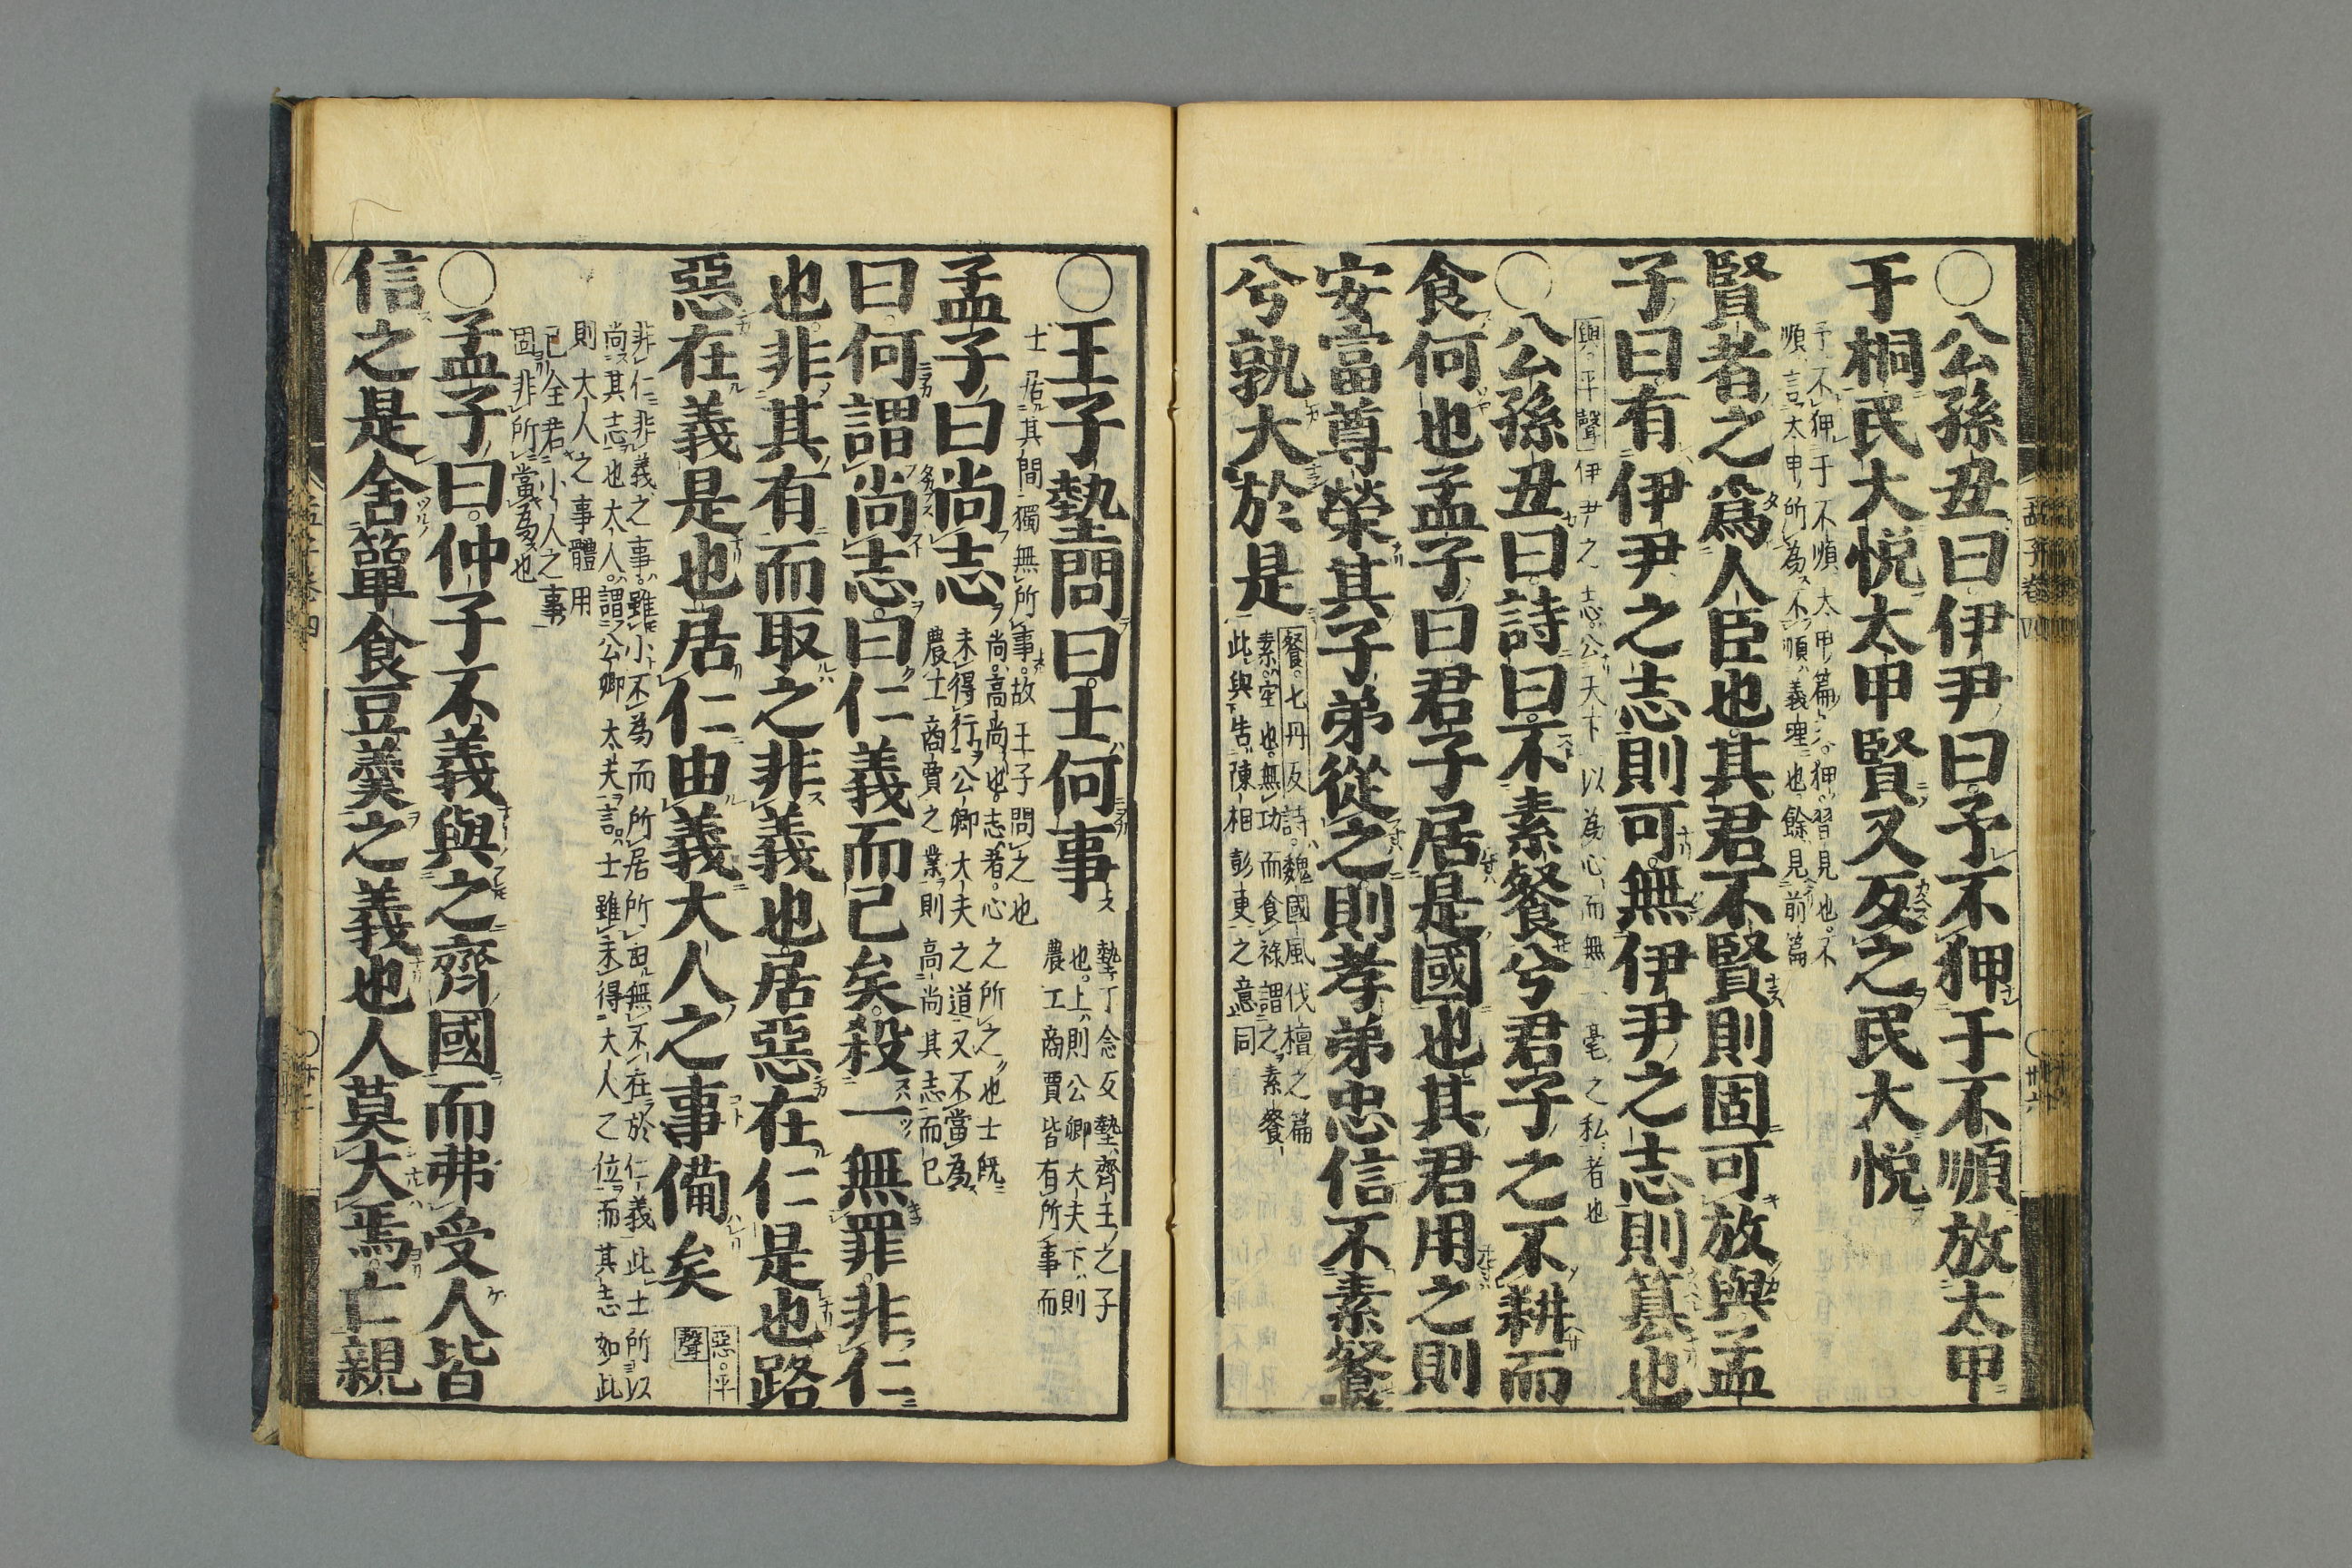 ○公孫丑曰伊尹曰予不狎于不順放太甲
于桐民大悦太甲賢又反之民大悦
予不狎于不順太甲篇文狎習見也不
順言太甲所為不順義理也餘見前篇
賢者之為人臣也其君不賢則固可放與孟
子曰有伊尹之志則可無伊尹之志則簒也
與平聲伊尹之志公天下以為心而無一毫之私者也
○公孫丑曰詩曰不素餐兮君子之不耕而
食何也孟子曰君子居是國也其君用之則
安富尊榮其子弟從之則孝弟忠信不素餐
兮孰大於是
餐七丹反詩魏國風伐檀之篇
素空也無功而食祿謂之素餐
此與告陳相彭更之意同
○王子墊問曰士何事
墊丁念反墊齊王之子
也上則公卿大夫下則
農工商賈皆有所事而
士居其間獨無所事故王子問之也
孟子曰尚志
尚高尚也志者心之所之也士既
未得行公卿大夫之道又不當為
農士商賈之業則高尚其志而已
曰何謂尚志曰仁義而已矣殺一無罪非仁
也非其有而取之非義也居惡在仁是也路
惡在義是也居仁由義大人之事備矣
惡平
聲
非仁非義之事雖小不為而所居所由無不在於仁義此士所以
尚其志也大人謂公卿大夫言士雖未得大人之位而其志如此
則大人之事體用
已全若小人之事
固非所當為也
○孟子曰仲子不義與之齊國而弗受人皆
信之是舍簞食豆羹之義也人莫大焉亡親
孟子卷四